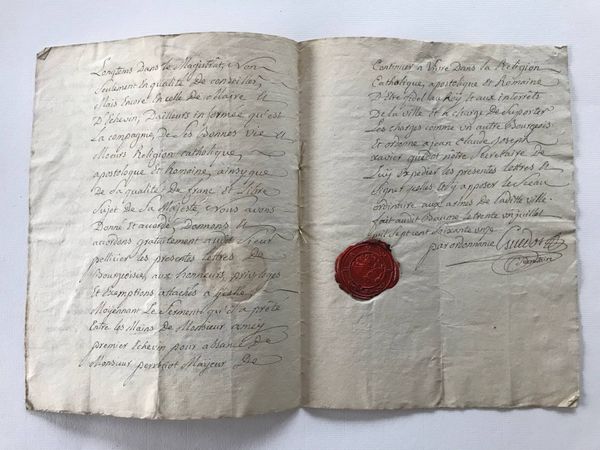 Longtems dans le Magistrat, Non
Seulement En qualité De conseiller,
Mais Encore En celle de Maire Et
D'Echevin, D'ailleurs informés qu'est
La compagne, De ses Bonnes vie Et
Moeurs Religion catholique,
apostolique Et Romaine, ainsy que
De sa qualité De franc Et Libre
Sujet De Sa Majesté, Nous avons
Donné Et accordé, Donnons Et
accordons gratuitement audit Sieur
pellitier les presentes Lettres De
Bourgeoises, aux honneurs, privileges
Et Exemptions attachés a ycelle
Moyennant Le Serment qu'il a prêté
Entre les Mains De Monsieur amey
premier Echevin pour absance De
Monsieur perreciot Mayeur De
Continuer a Vivre Dans la Religion
Catholique, apostolique Et Romaine
D'Etre fidel au Roy Et aux interêts
De la ville Et a charge De Suporter
Les charges comme un autre Bourgeois
Et ordonné a jean Claude Joseph
xavier notre Secretaire De
Luy Expedier les presentes Lettres Et
Signer jcelles Et y apposer le Sceau
ordinaire aux armes De laditte ville.
fait audit Baume le trente un juillet
Mil Sept cent Soixante onze
par ordonnance